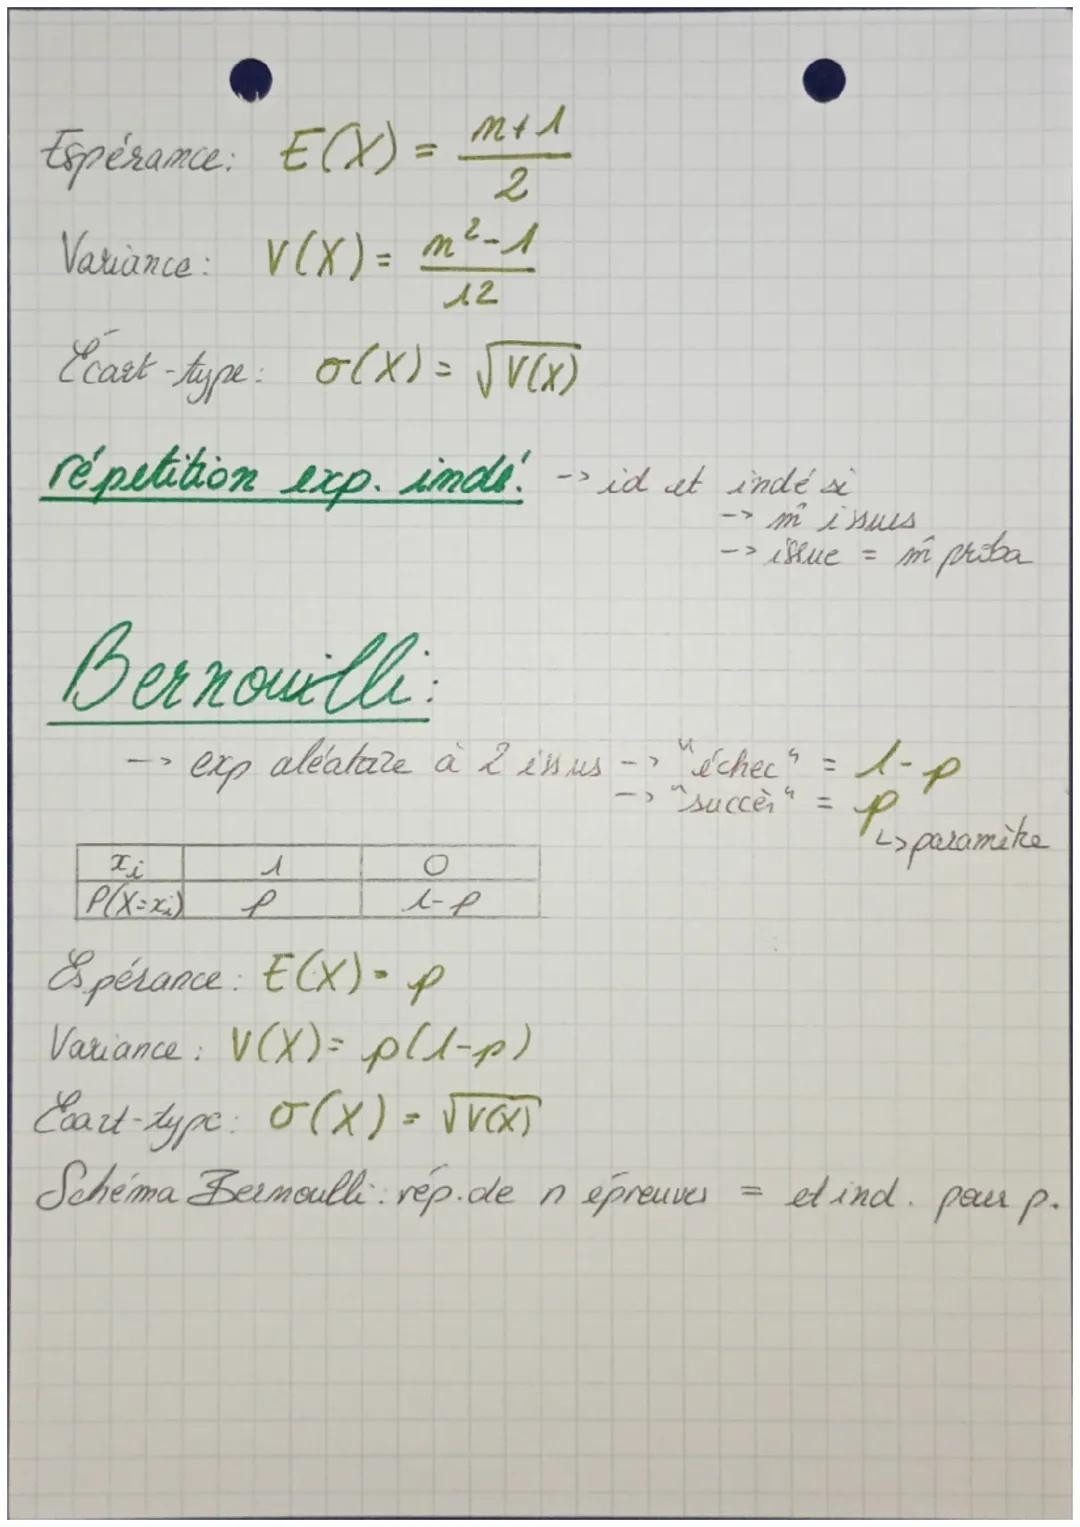 Espérance: E(X) = n+1/2
Variance: V(X) = n²-1/12
Écart-type: σ(X) = √V(X)
répetition exp. indé. -> id et indé si
-> m̂ issues
-> issue = m̂ proba
Bernouilli:
-> exp aléatoire à 2 issus -> "échec" = 1-p
-> "succès" = p
↳ paramètre
xi 1 0
P(X=xi) p 1-p
Espérance: E(X) = p
Variance: V(X) = p(1-p)
Écart-type: σ(X) = √V(X)
Schéma Bernoulli: rép. de n épreuves = et ind. pour p.